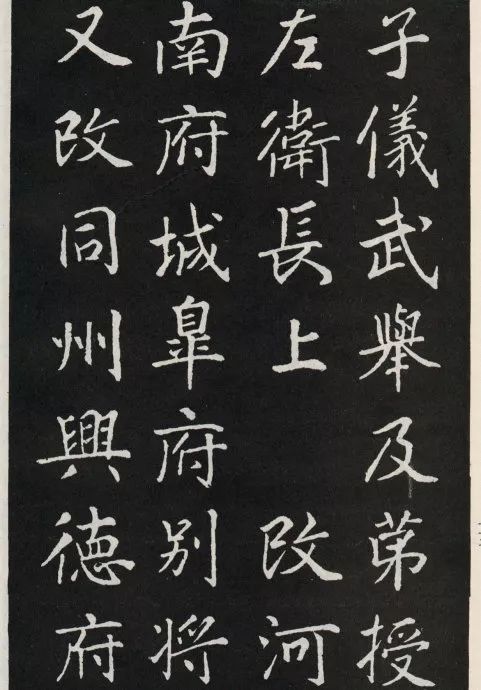 子儀武舉及苐授
左衛長上 改河
南府城臯府别将
又改同州興徳府